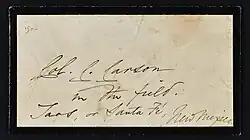 Col. C. Carson
in the field.
Taos, or Santa Fé,
New Mexico